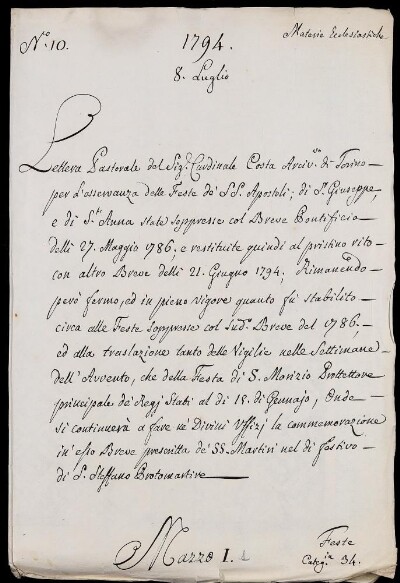 N.º 10.
1794.
Materie Ecclesiastiche
8. Luglio
Lettera Pastorale del Sig.r Cardinale Costa Arciv.vo di Torino
per l'osservanza delle Feste de' S.S. Apostoli; di S.n Giuseppe,
e di S.t Anna state soppresse col Breve Pontificio
delli 27. Maggio 1786, e restituite quindi al pristino rito
con altro Breve delli 21. Giugno 1794; Rimanendo
però fermo, ed in pieno vigore quanto fù stabilito
circa alle Feste soppresse col sud.o Breve del 1786,
ed alla traslazione tanto delle Vigilie nelle Settimane
dell'Avvento, che della Festa di S. Morizio Protettore
principale de' Regj Stati al di 18. di Gennajo, Onde
si continuerà a fare ne' Divini Uffizj la commemorazione
in esso Breve prescritta de' SS. Martiri nel dì festivo
di S. Steffano Protomartire
Mazzo I. 2
Feste
Categ.ia 34.